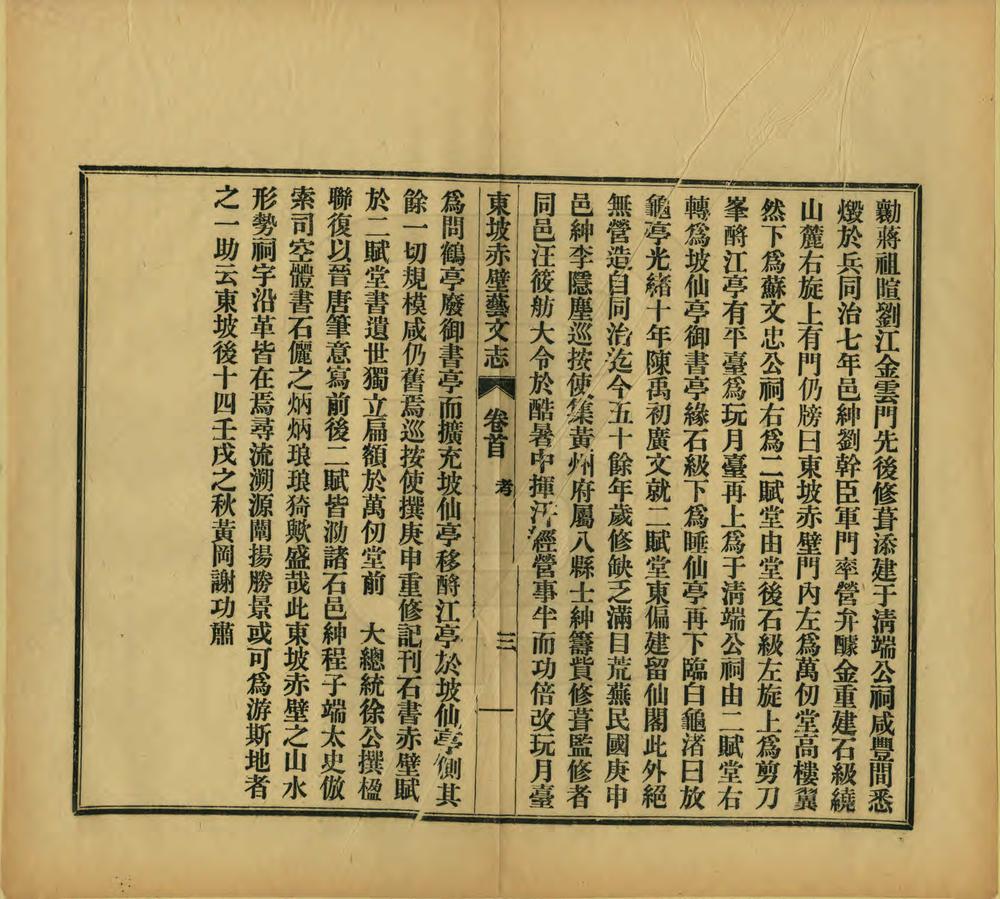 勷蔣祖暄劉江金雲門先後修葺添建于清端公祠咸豐間悉
燬於兵同治七年邑紳劉幹臣軍門率營弁醵金重建石級繞
山麓右旋上有門仍牓曰東坡赤壁門內左爲萬仞堂高樓翼
然下爲蘇文忠公祠右爲二賦堂由堂後石級左旋上爲剪刀
峯酹江亭有平臺爲玩月臺再上爲于清端公祠由二賦堂右
轉爲坡仙亭御書亭緣石級下爲睡仙亭再下臨白龜渚曰放
龜亭光緒十年陳禹初廣文就二賦堂東偏建留仙閣此外絕
無營造自同治迄今五十餘年歲修缺乏滿目荒蕪民國庚申
邑紳李隱塵巡按使集黃州府屬八縣士紳籌貲修葺監修者
同邑汪筱舫大令於酷暑中揮汗經營事半而功倍改玩月臺
東坡赤壁藝文志 卷首 考 三
爲問鶴亭廢御書亭而擴充坡仙亭移酹江亭於坡仙亭側其
餘一切規模咸仍舊焉巡按使撰庚申重修記刊石書赤壁賦
於二賦堂書遺世獨立扁額於萬仞堂前 大總統徐公撰楹
聯復以晉唐筆意寫前後二賦皆泐諸石邑紳程子端太史倣
索司空體書石儷之炳炳琅琅猗歟盛哉此東坡赤壁之山水
形勢祠宇沿革皆在焉尋流溯源闡揚勝景或可爲游斯地者
之一助云東坡後十四壬戌之秋黃岡謝功肅